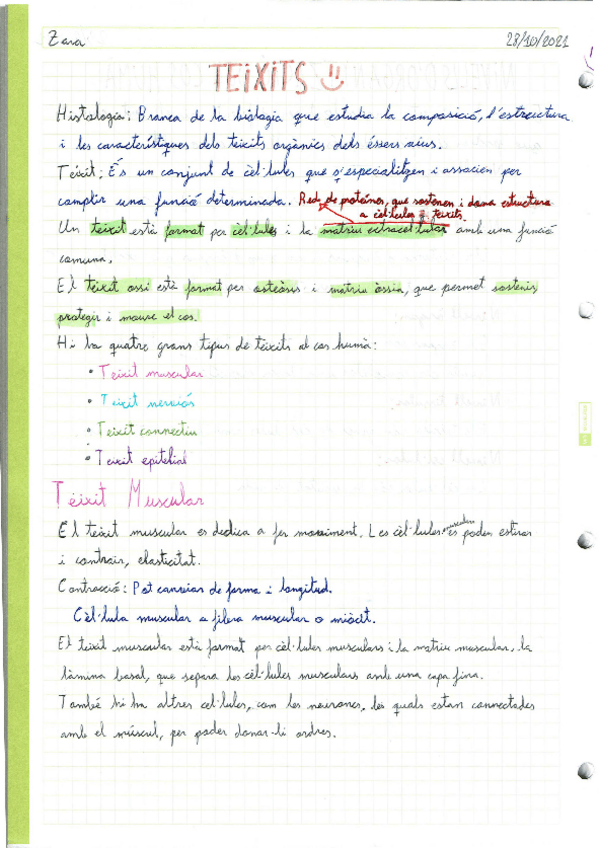 Zara 28/10/2021
TEIXITS
Histologia: Branca de la biologia que estudia la composició, l'estructura
i les característiques dels teixits orgànics dels éssers vius.
Teixit: És un conjunt de cèl·lules que s'especialitzen i associen per
complir una funció determinada. Red de proteínes, que sostenen i dona estructura
a cèl·lules i teixits.
Un teixit està format per cèl·lules i la matriu extracel·lular amb una funció
comuna.
El teixit ossi està format per osteòsis i matriu òssia, que permet sostenir,
protegir i moure el cos.
Hi ha quatre grans tipus de teixits al cos humà:
• Teixit muscular
• Teixit nerviós
• Teixit connectiu
• Teixit epitelial
Teixit Muscular
El teixit muscular es dedica a fer moviment. Les cèl·lules musculars es poden estirar
i contrair, elasticitat.
Contracció: Pot canviar de forma i longitud.
Cèl·lula muscular o fibra muscular o miòcit.
El teixit muscular està format per cèl·lules musculars i la matriu muscular, la
làmina basal, que separa les cèl·lules musculars amb una capa fina.
També hi ha altres cèl·lules, com les neurones, les quals estan connectades
amb el múscul, per poder donar-li ordres.